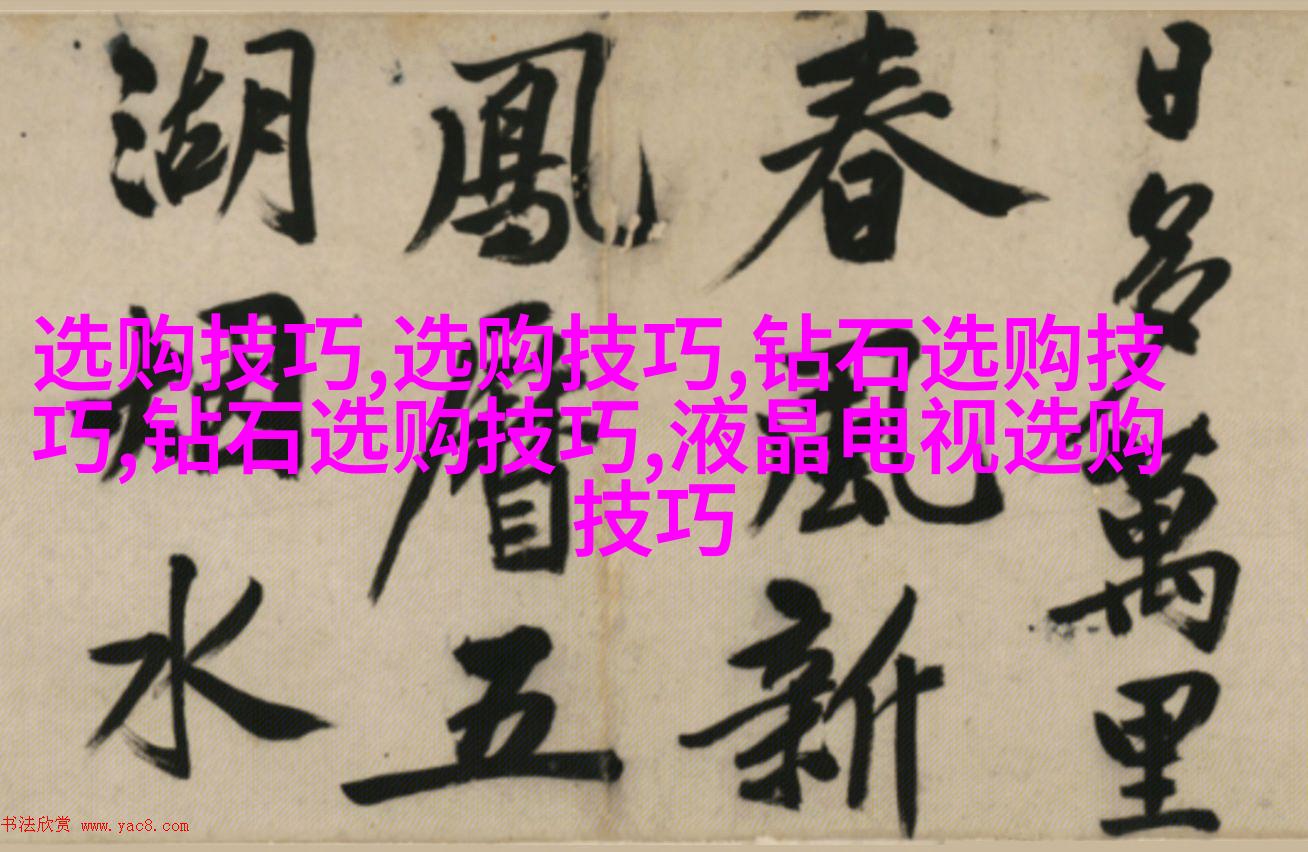 日名萬里
春風新
鳳五
湖烟水
选购技巧,选购技巧,钻石选购技
巧,钻石选购技巧,液晶电视选购
技巧
书法欣赏 www.yac8.com